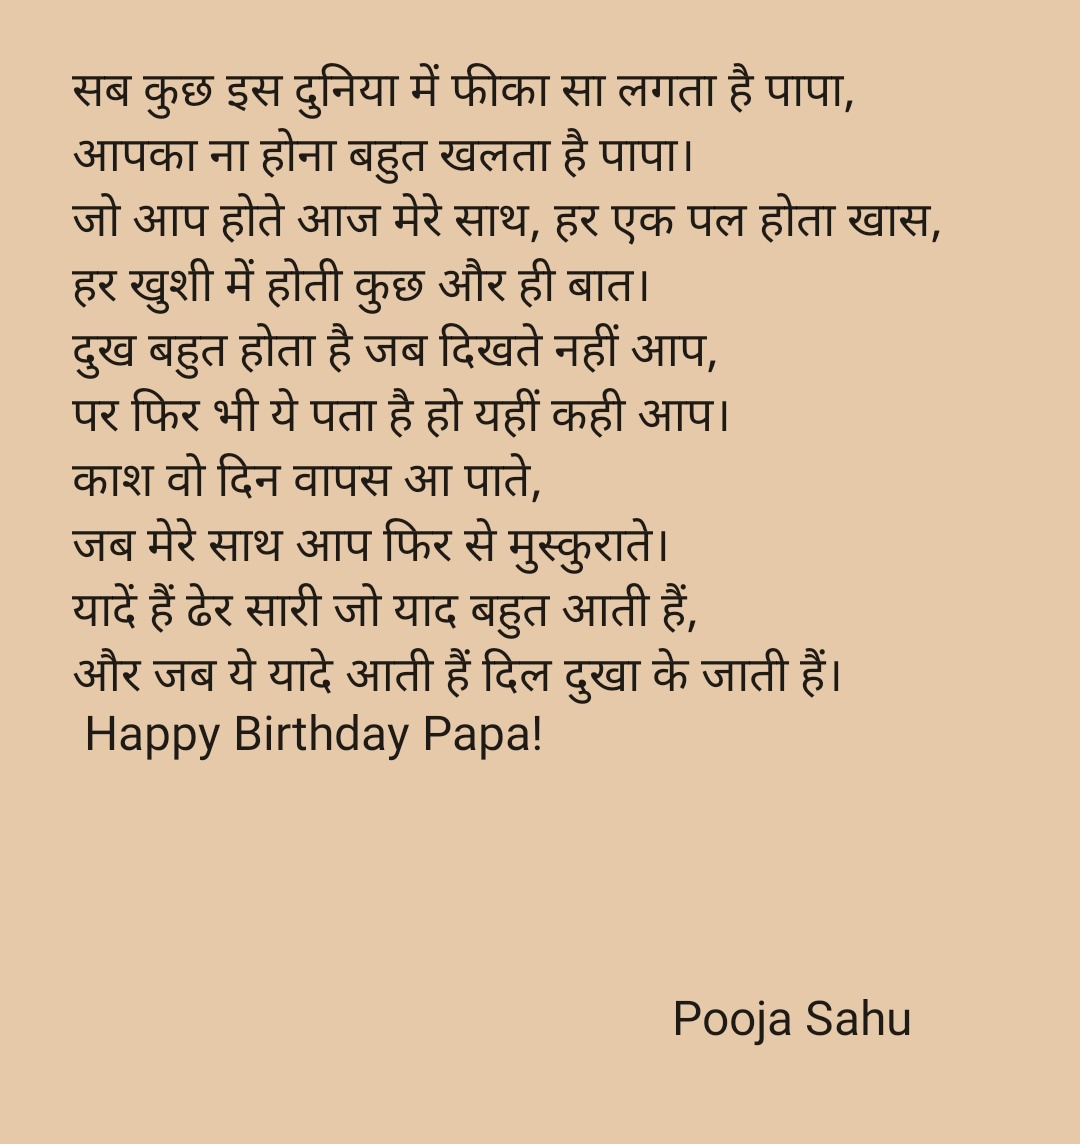 सब कुछ इस दुनिया में फीका सा लगता है पापा,
आपका ना होना बहुत खलता है पापा।
जो आप होते आज मेरे साथ, हर एक पल होता खास,
हर खुशी में होती कुछ और ही बात।
दुख बहुत होता है जब दिखते नहीं आप,
पर फिर भी ये पता है हो यहीं कही आप।
काश वो दिन वापस आ पाते,
जब मेरे साथ आप फिर से मुस्कुराते।
यादें हैं ढेर सारी जो याद बहुत आती हैं,
और जब ये यादे आती हैं दिल दुखा के जाती हैं।
Happy Birthday Papa!
Pooja Sahu